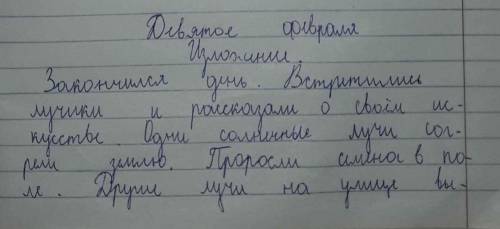 Девятое февраля
Изложение.
Закончился день. Встретились
лучики и рассказали о своём ис-
кусстве. Одни солнечные лучи сог-
рели землю. Проросли семена в по-
ле. Другие лучи на улице вы-